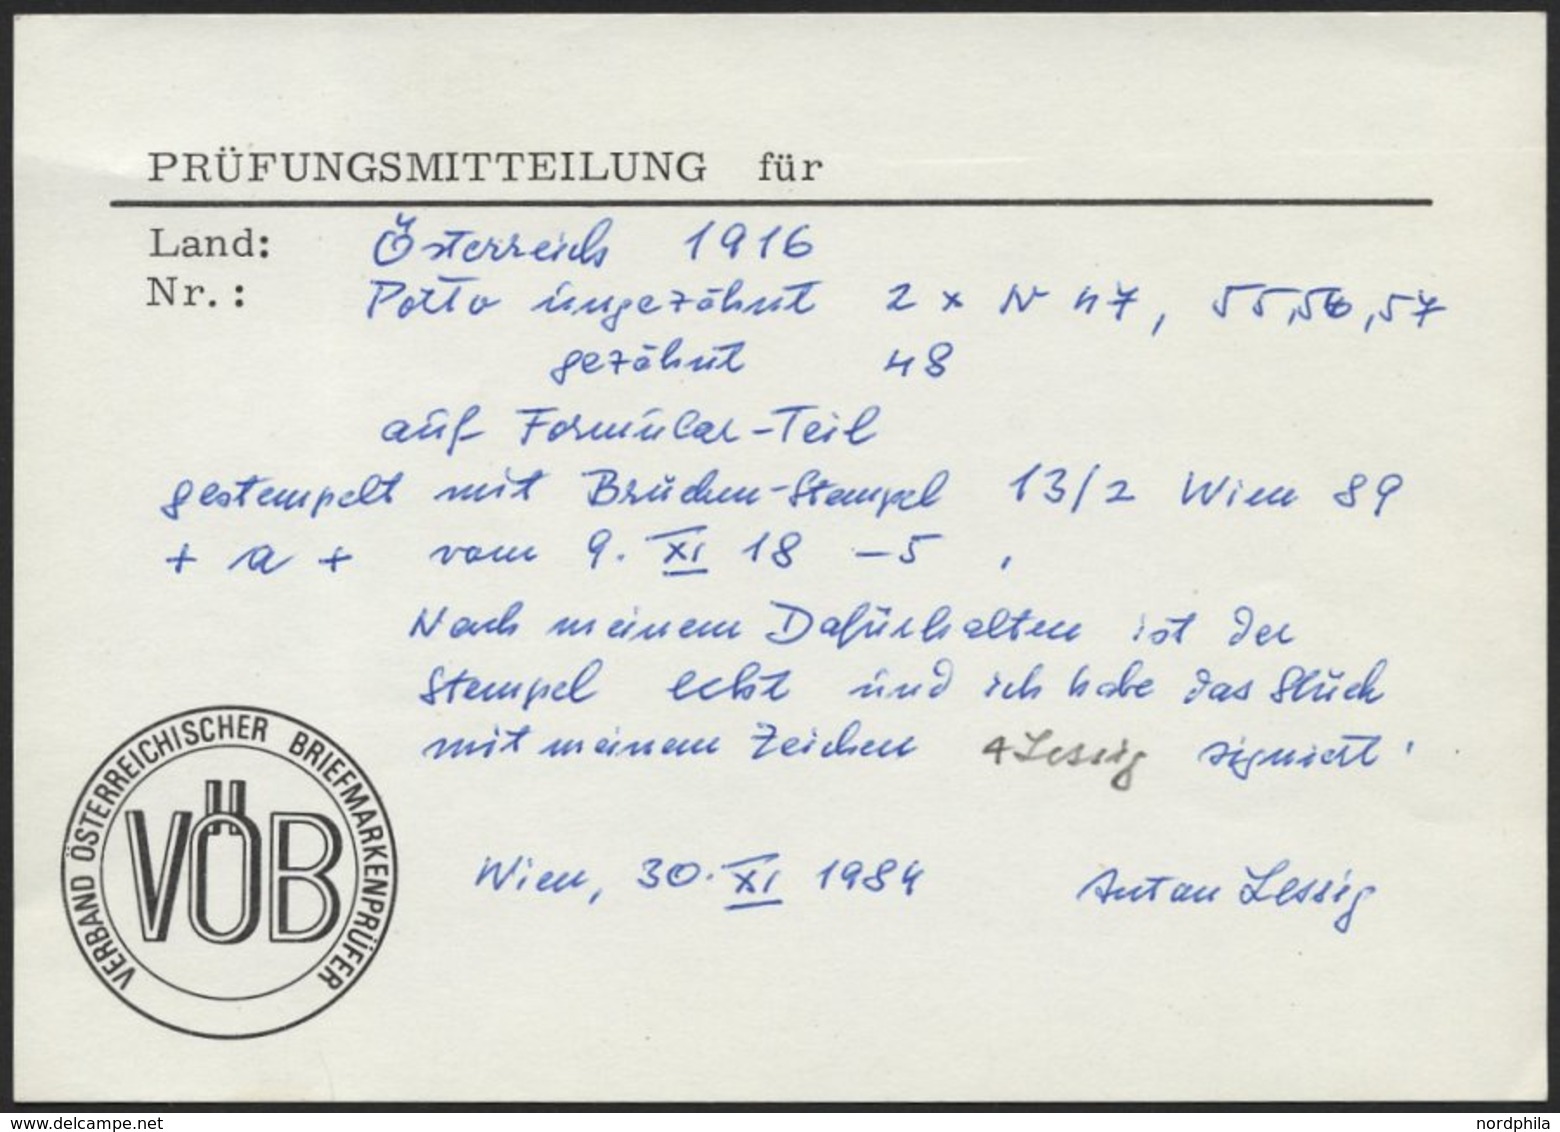 PRÜFUNGSMITTEILUNG für
Land: Österreich 1916
Nr.: Porto ungezähnt 2 x N 47, 55, 56, 57
gezähnt 48
auf Formular-Teil
gestempelt mit Brücken-Stempel 13/2 Wien 89
+ a + vom 9. XI 18 -5,
Nach meinem Dafürhalten ist der
Stempel echt und ich habe das Stück
mit meinem Zeichen A Lessig signiert.
Wien, 30. XI 1984 Anton Lessig
VERBAND ÖSTERREICHISCHER BRIEFMARKENPRÜFER
VÖB
delcampe.net nordphila